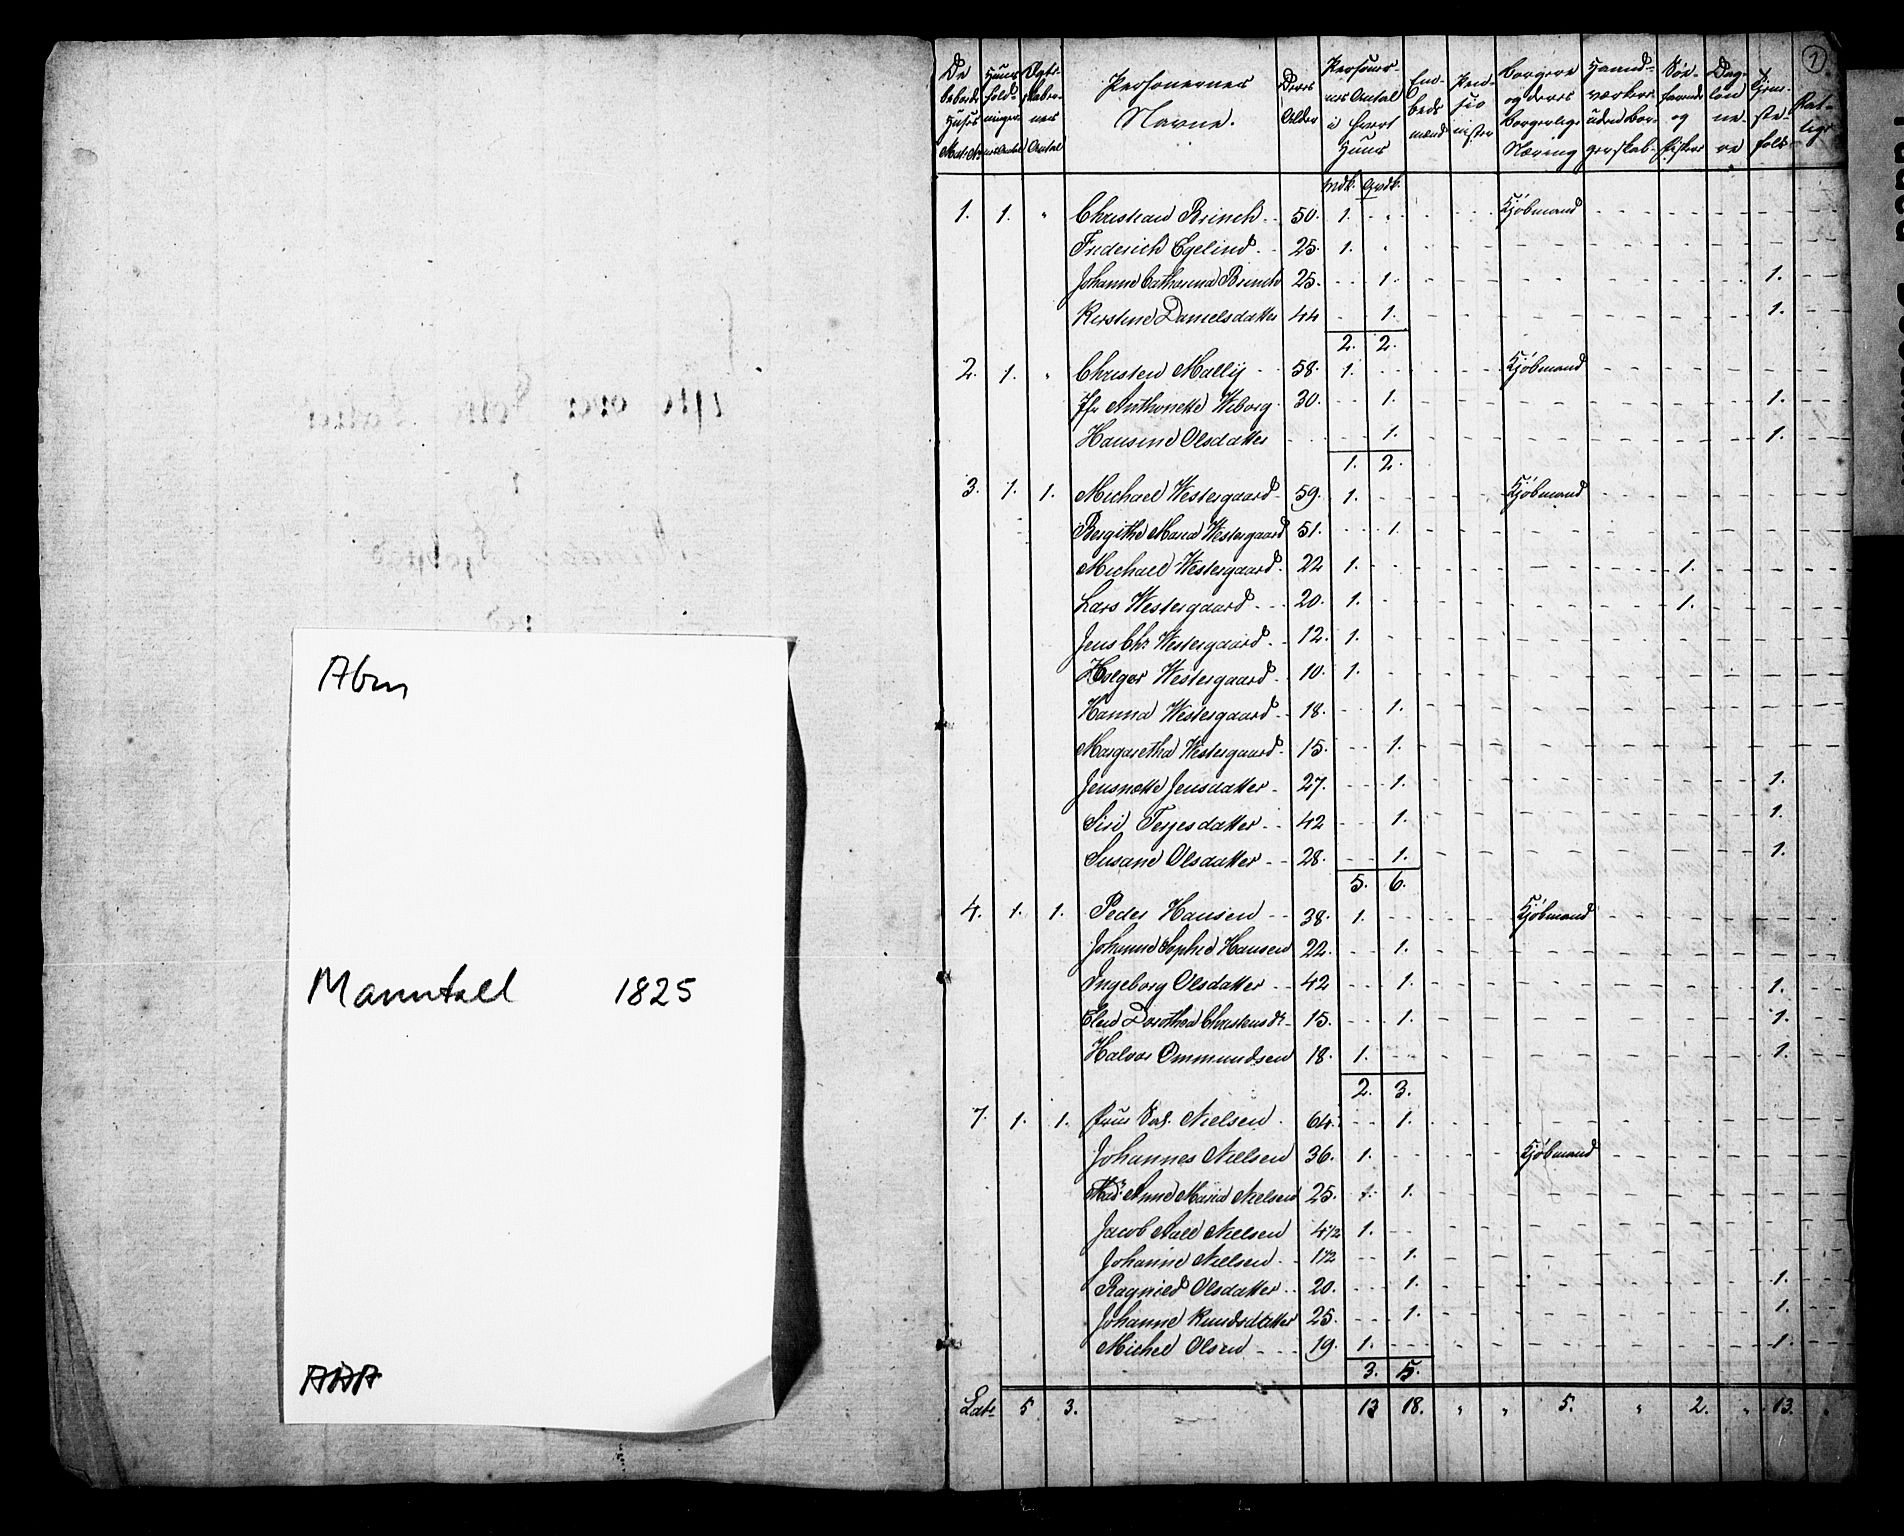 Abm
Manntall 1825
1
De beboede Huses Mat. No
Huus holdningernes Antal
Ægteskabernes Antal
Personernes Navne.
Deres Alder
Personernes Antal i hvert Huus
Embedsmænd
Pensionister
Borgere og deres borgerlige Næring
Haandværkere uden Borgerskab
Søefarende og Fiskere
Daglønnere
Tjenestefolk
Mdk. Qvdk.
1. 1. " Christian Brinch 50. 1. " Kjöbmand
Friderich Egelind 25. 1. "
Johanne Catharina Brinch 25. 1. 1.
Kirstine Danielsdatter 44 1. 1.
2. 2.
2. 1. " Christen Mallig 58. 1. Kjöbmand
Jfr Anthonette Wiborg 30. 1. 1.
Hansine Olsdatter 1. 1.
1. 2.
3. 1. 1. Michael Westergaard 59. 1. Kjöbmand
Bergithe Maria Westergaard 51. 1.
Michael Westergaard 22 1. 1.
Lars Westergaard 20. 1. 1.
Jens Chr. Westergaard 12. 1.
Holger Westergaard 10. 1.
Hanna Westergaard 18. 1.
Margaretha Westergaard 15. 1.
Jensnette Jensdatter 27. 1. 1.
Siri Terjesdatter 42 1. 1.
Susane Olsdatter 28. 1. 1.
5. 6.
4. 1. 1. Peder Hansen 38. 1. Kjöbmand
Johanne Sophie Hansen 22. 1.
Ingeborg Olsdatter 42 1. 1.
Elen Dorothea Christensdr 15. 1. 1.
Halvor Ommundsen 18. 1. 1.
2. 3.
7. 1. 1. Nielsen 64. 1.
Johannes Nielsen 36. 1. Kjöbmand
Mad. Anne Maria Nielsen 25. 1.
Jacob Aall Nielsen 4 1/2 1.
Johanne Nielsen 1 1/2 1.
Ragnild Olsdatter 20. 1. 1.
Johanne Knudsdatter 25. 1. 1.
Michel Olsen 19. 1. 1.
3. 5.
Lat. 5 3. 13 18. " " 5. " 2. " 13. "